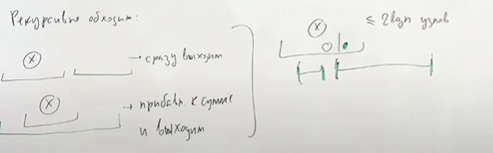 Рекурсивно обходим:
x
→ сразу выходим
x
→ прибавл. к сумме
и выходим
x
≤ 2log n узлов